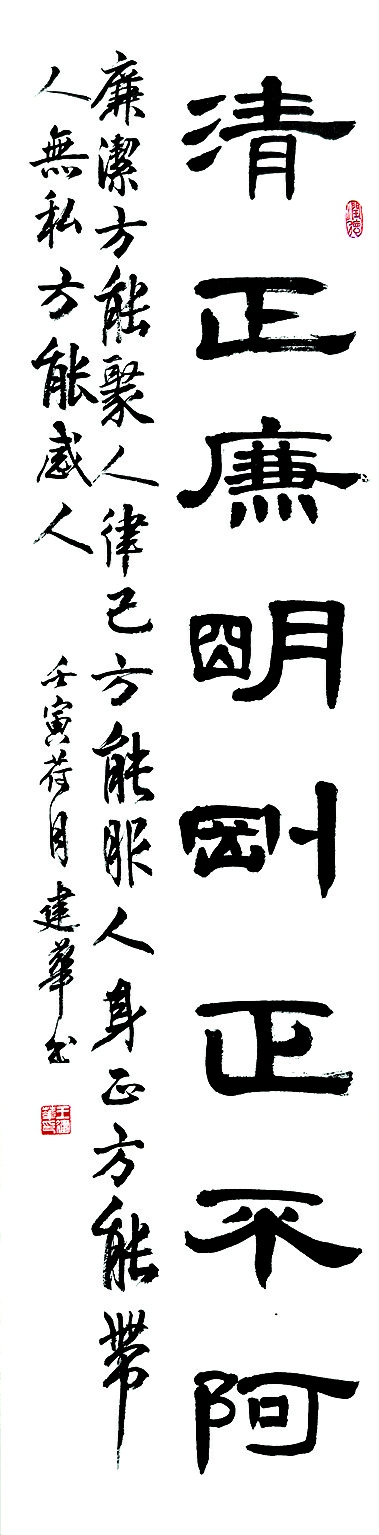 清正廉朙剛正不阿
廉潔方能聚人律己方能服人身正方能帶
人無私方能感人 壬寅荷月建華书
王建華印